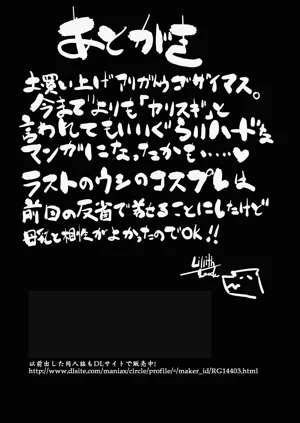 あとがき
お買い上げアリガトウゴザイマス。
今まで よりも「ヤリスギ」と
言われてもいいぐらいハードな
マンガになったかも・・・・・♥
ラストのウシのコスプレは
前回の反省で載せることにしたけど
母乳と相性がよかったのでOK!!
Lilith
以前出した同人誌もDLサイトで販売中!
http://www.dlsite.com/maniax/circle/profile/=/maker_id/RG14403.html